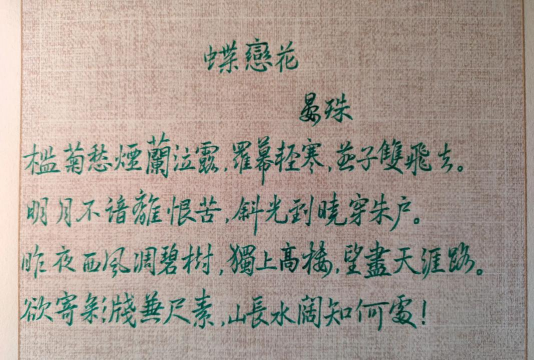 蝶戀花
晏殊
檻菊愁煙蘭泣露,羅幕輕寒,燕子雙飛去。
明月不諳離恨苦,斜光到曉穿朱户。
昨夜西風凋碧樹,獨上高樓,望盡天涯路。
欲寄彩牋無尺素,山長水闊知何處!